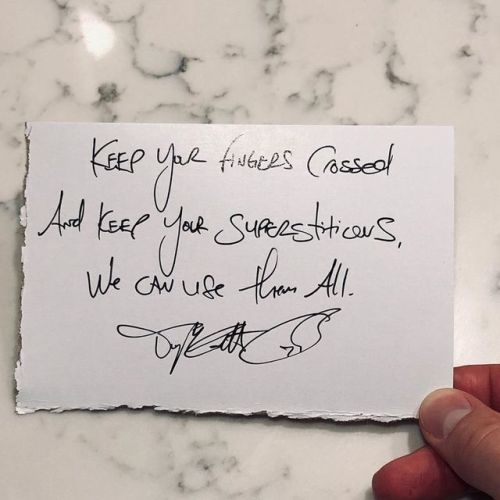 KEEP YOUR FINGERS CROSSED
AND KEEP YOUR SUPERSTITIONS,
WE CAN USE THEM ALL.